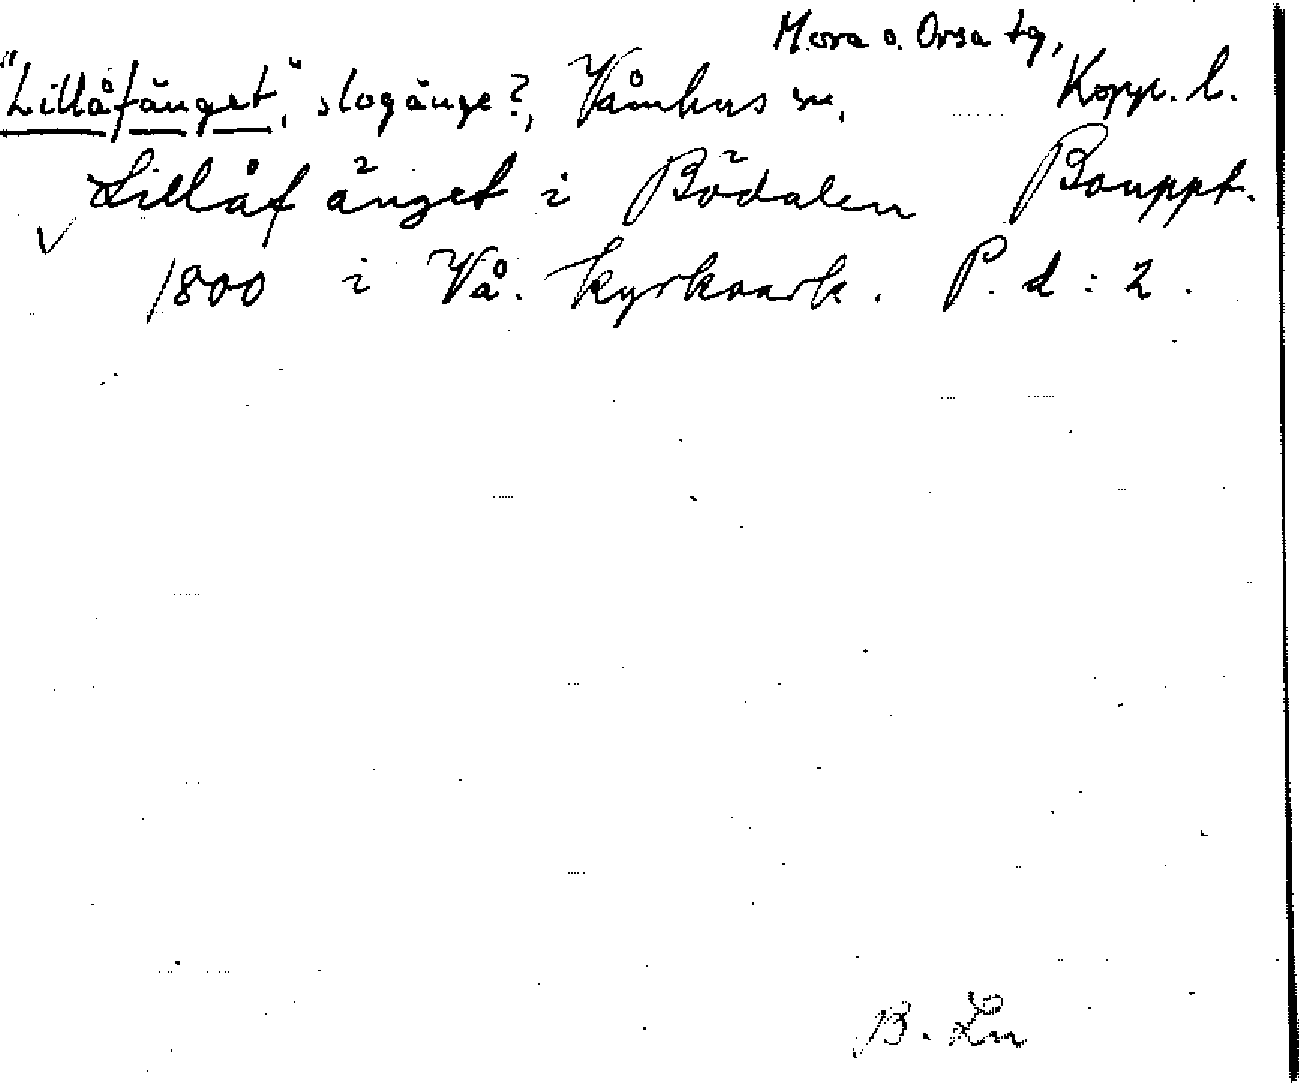 Mora o. Orsa tg,
"Lillåfänget", slogänge?, Våmhus sn, Kopp. l.
Lillåf änget i Bödalen Bouppt.
1800 i Vå. kyrkoark. P. d : 2.
B. Ln